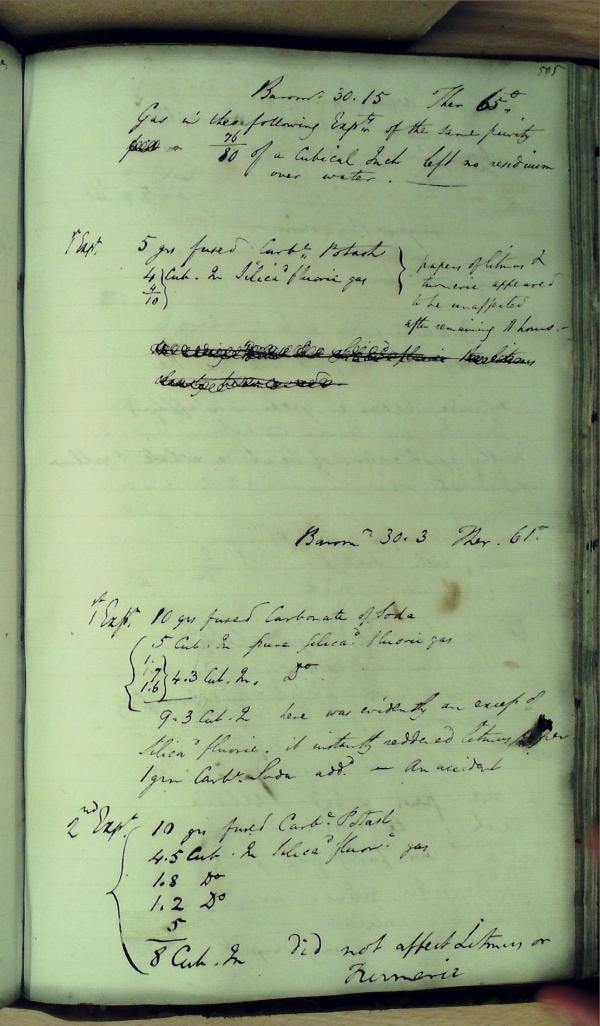 505
Barom.r 30.15 Ther 65°
Gas in these following Expts of the same purity
76/80 of a Cubical Inch left no residuum
over water.
1st Expt. 5 grs fused Carb.te Potash
4 Cub. In Silica.d fluoric gas
4/10
papers of litmus &
turmeric appeared
to be unaffected
after remaining 11 hours.
Barom.r 30.3 Ther. 61°
1st Expt. 10 grs fused Carbonate of Soda
5 Cub. In pure Silica.d fluoric gas
1.7
1.6 4.3 Cub. In. Do
9.3 Cub. In here was evidently an excess of
Silica.d fluoric. it instantly reddened litmus paper
1 grn Carb.te Soda add.d — An accident
2nd Expt. 10 grs fused Carb.te Potash
4.5 Cub. In Silica.d fluor.c gas
1.8 Do
1.2 Do
5
8 Cub. In Did not affect Litmus or
Turmeric